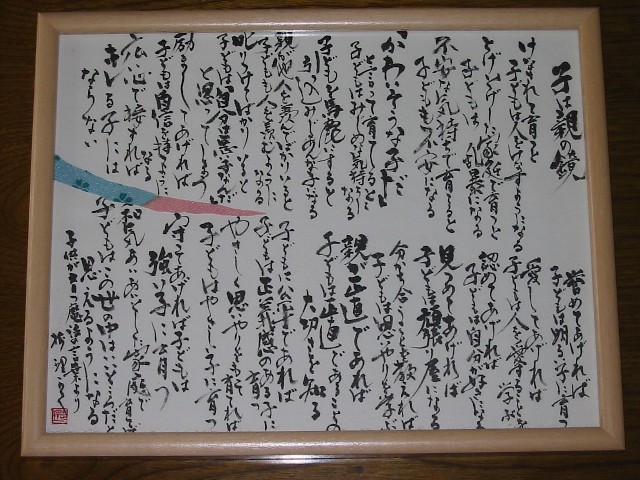 子は親の鏡
けなされて育つと
子どもは人をけなすようになる
とげとげした家庭で育つと
子どもは 乱暴になる
不安な気持ちで育てると
子どもも不安になる
「かわいそうな子だ」
と言って育てると
子どもはみじめな気持ちになる
子どもを馬鹿にすると
引っ込みじあんな子になる
親が他人を羨んでばかりいると
子どもも人を羨むようになる
叱りつけてばかりいると
子どもは「自分は悪い子なんだ」
と思ってしまう
励ましてあげれば
子どもは自信を持つようになる
広い心で接すれば
キレる子には
ならない
誉めてあげれば
子どもは明るい子に育つ
愛してあげれば
子どもは人を愛することを学ぶ
認めてあげれば
子どもは自分が好きになる
見つめてあげれば
子どもは頑張り屋になる
分かち合うことを教えれば
子どもは思いやりを学ぶ
親が正直であれば
子どもは正直であることの
大切さを知る
子どもに公平であれば
子どもは正義感のある子に育つ
やさしく思いやりをもって育てれば
子どもはやさしい子に育つ
守ってあげれば子どもは
強い子に育つ
和気あいあいとした家庭で育てば
子どもはこの世の中はいいところだと
思えるようになる
子供が育つ魔法の言葉より